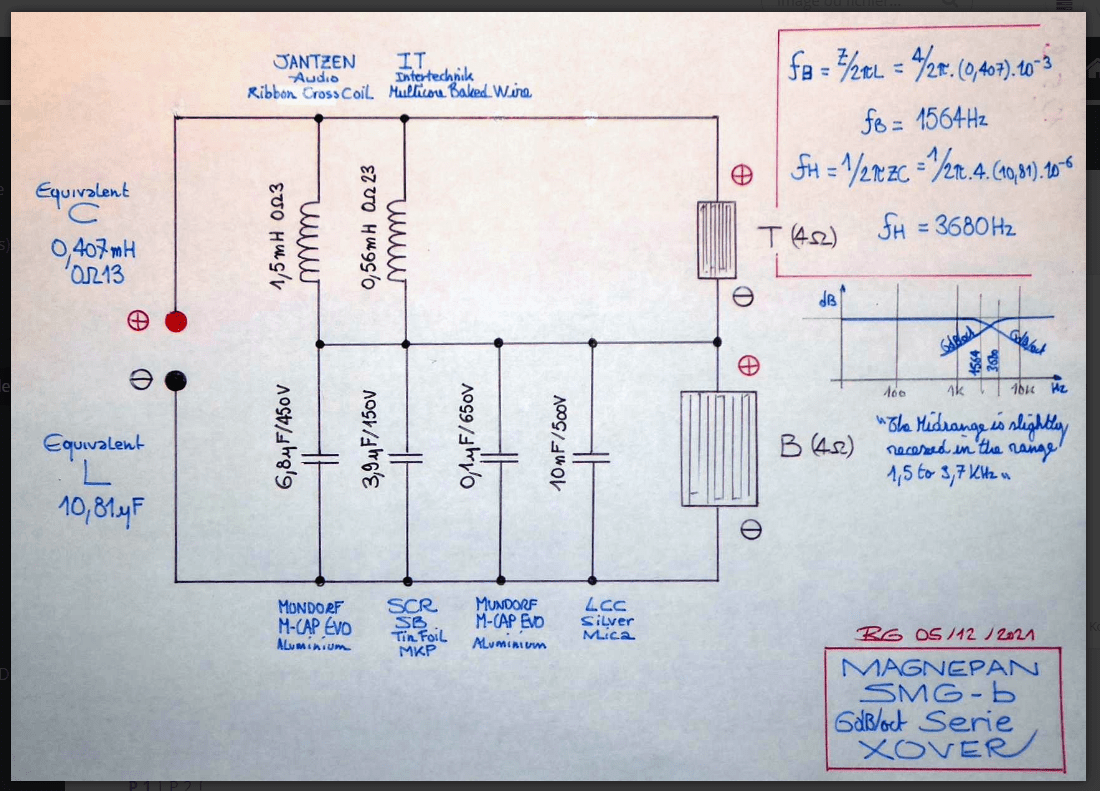 JANTZEN
Audio
Ribbon CrossCoil
IT
Intertechnik
Multicore Baked Wire
fB = Z/2πL = 4/2π.(0,407).10-3
fB = 1564Hz
fH = 1/2πZC = 1/2π.4.(10,81).10-6
fH = 3680Hz
Equivalent
C
0,407mH
0Ω13
1,5mH 0Ω3
0,56mH 0Ω23
⊕
⊖
T (4Ω)
⊕
⊖
dB
6dB/oct
6dB/oct
1564
3680
100
1K
10K
Hz
"The Midrange is slightly
recessed in the range
1,5 to 3,7 KHz"
Equivalent
L
10,81µF
6,8µF/450V
3,9µF/150V
0,1µF/650V
10nF/500V
⊕
B (4Ω)
⊖
MUNDORF
M-CAP EVO
Aluminium
SCR
SB
Tin Foil
MKP
MUNDORF
M-CAP EVO
Aluminium
LCC
Silver
Mica
RG 05/12/2021
MAGNEPAN
SMG-b
6dB/oct Serie
XOVER